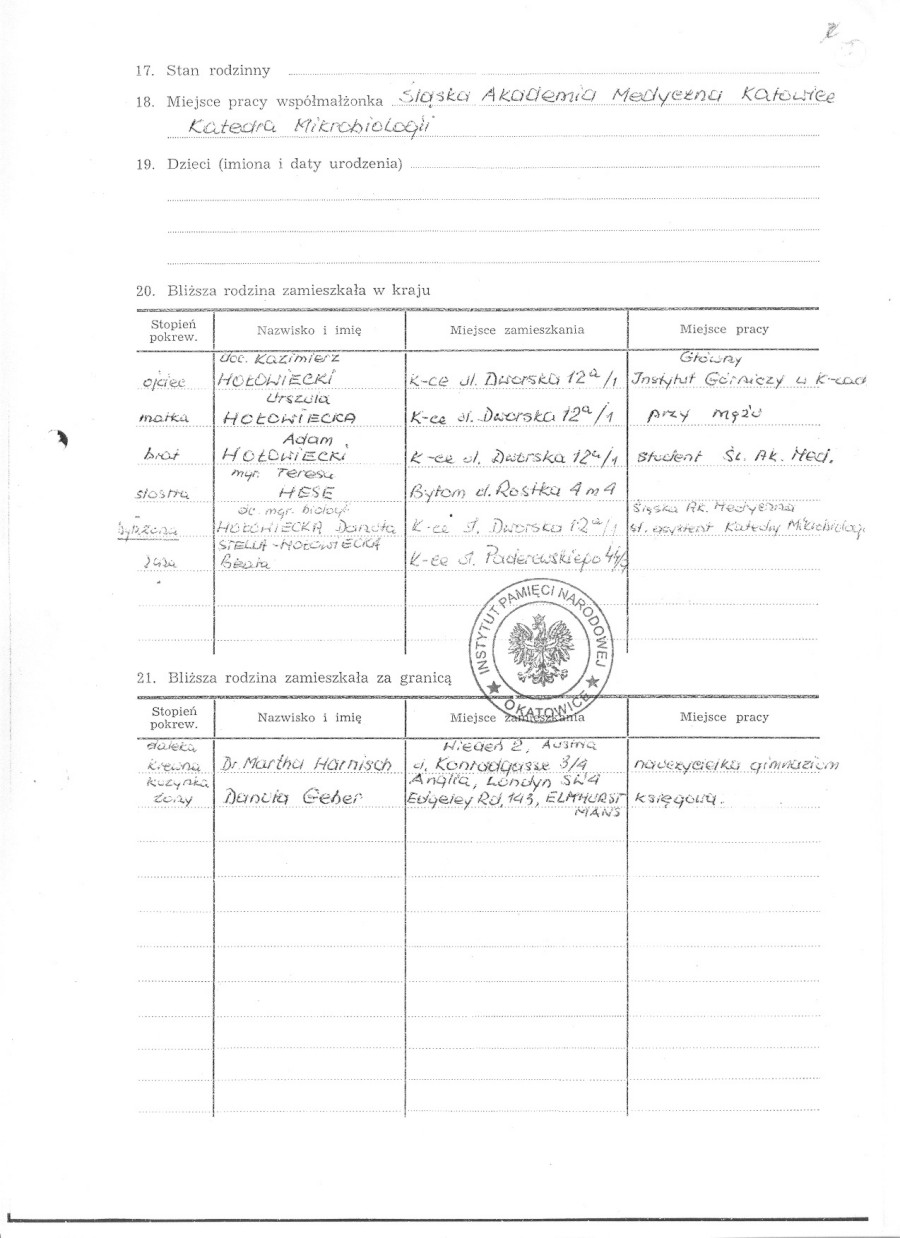 17. Stan rodzinny
18. Miejsce pracy współmałżonka Śląska Akademia Medyczna Katowice
Katedra Mikrobiologii
19. Dzieci (imiona i daty urodzenia)
20. Bliższa rodzina zamieszkała w kraju
Stopień pokrew. Nazwisko i imię Miejsce zamieszkania Miejsce pracy
doc. Kazimierz Główny
ojciec HOŁOWIECKI K-ce ul. Dworska 12a/1 Instytut Górniczy w K-cach
Urszula
matka HOŁOWIECKA K-ce ul. Dworska 12a/1 przy mężu
Adam
brat HOŁOWIECKI K-ce ul. Dworska 12a/1 student Śl. Ak. Med.
mgr. Teresa
siostra HESE Bytom ul. Rostka 4 m 4
mgr. biolog. Śląska Ak. Medyczna
HOŁOWIECKA Danuta K-ce ul. Dworska 12a/1 st. asystent Katedry Mikrobiologi
STELLA-HOŁOWIECKA
Beata K-ce ul. Paderewskiego
INSTYTUT PAMIĘCI NARODOWEJ
O KATOWICE
21. Bliższa rodzina zamieszkała za granicą
Stopień pokrew. Nazwisko i imię Miejsce zamieszkania Miejsce pracy
daleka Wiedeń 2, Austria
krewna Dr. Martha Harnisch ul. Konradgasse 3/4 nauczycielka gimnazium
kuzynka Anglia, Londyn SW4
żony Danuta Geber Edgeley Rd, 143, ELMHURST księgowa.
MANS